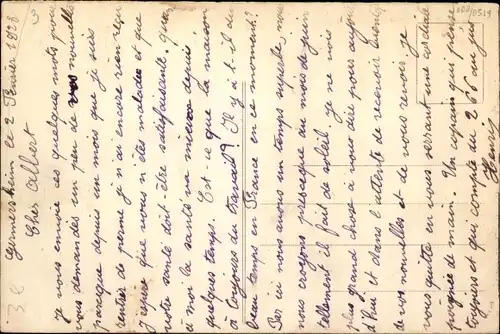 Germersheim le 2 Février 1928
Cher Albert
je vous envoie ces quelques mots pour
vous demander un peu de vos nouvelles
parceque depuis un mois que je suis
rentrer de perme je n'ai encore rien reçu
j'espère que vous n'êtes malades et que
votre santé doit-être satisfaisante. Quant
à moi la santé va mieux depuis
quelques temps. Est-ce que la maison
à toujours du travail? Il y a t-il du
beau temps en France en ce moment?
Par ici nous avons un temps superbe nous
nous croyons presque au mois de juin
tellement il fait de soleil. je ne vois
plus grand chose à vous dire pour aujour
d'hui et dans l'attente de recevoir bientôt
vos nouvelles et de vous revoir je
vous quitte en vous versant une cordiale
poignée de main. Un copain qui pense
toujours et qui compte du 265 au jus
Henri